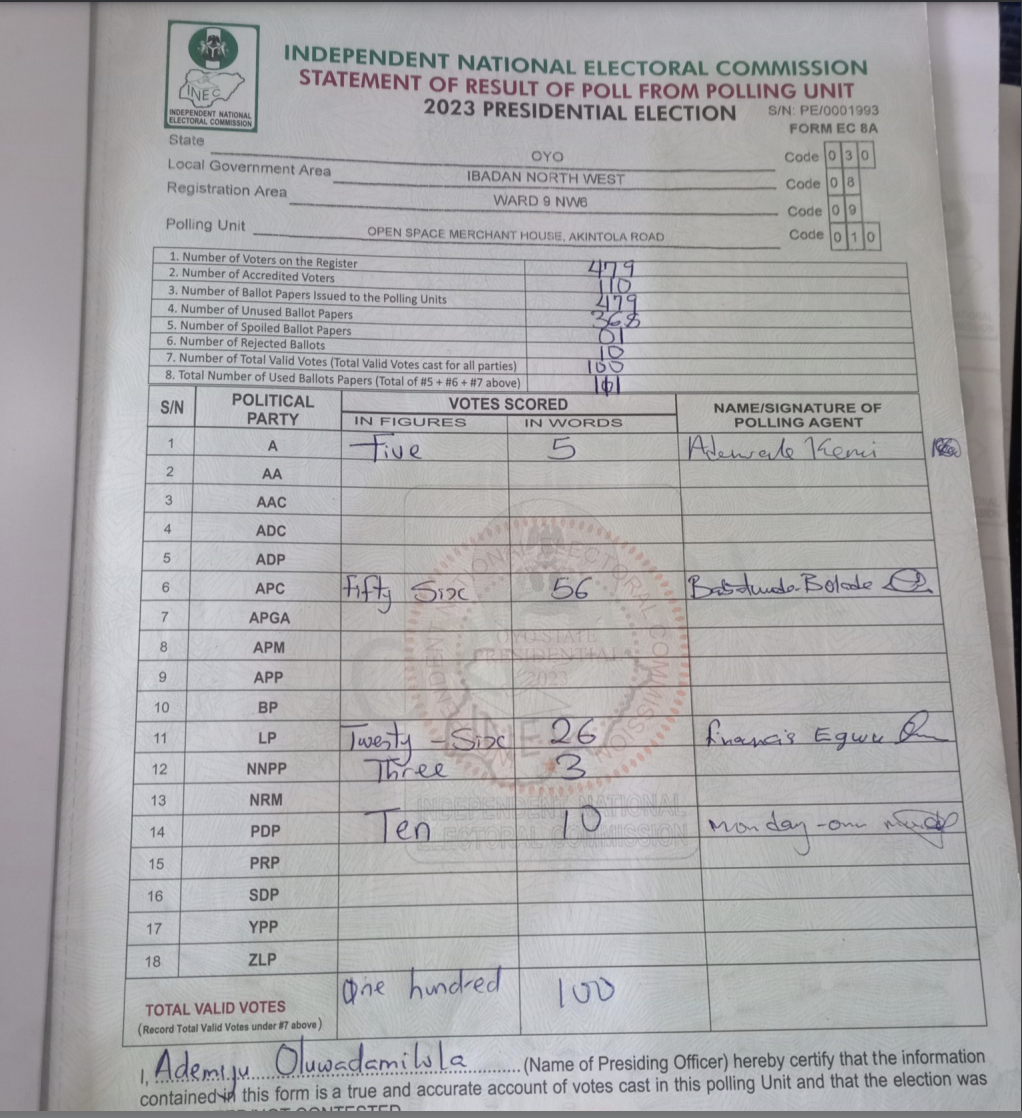 INEC
INDEPENDENT NATIONAL
ELECTORAL COMMISSION
INDEPENDENT NATIONAL ELECTORAL COMMISSION
STATEMENT OF RESULT OF POLL FROM POLLING UNIT
2023 PRESIDENTIAL ELECTION S/N: PE/0001993
FORM EC 8A
State OYO Code 0 3 0
Local Government Area IBADAN NORTH WEST Code 0 8
Registration Area WARD 9 NW6 Code 0 9
Polling Unit OPEN SPACE MERCHANT HOUSE, AKINTOLA ROAD Code 0 1 0
1. Number of Voters on the Register 479
2. Number of Accredited Voters 110
3. Number of Ballot Papers Issued to the Polling Units 479
4. Number of Unused Ballot Papers 368
5. Number of Spoiled Ballot Papers 01
6. Number of Rejected Ballots 10
7. Number of Total Valid Votes (Total Valid Votes cast for all parties) 100
8. Total Number of Used Ballots Papers (Total of #5 + #6 + #7 above)
S/N POLITICAL PARTY VOTES SCORED NAME/SIGNATURE OF POLLING AGENT
IN FIGURES IN WORDS
1 A Five 5 Adewale Kemi
2 AA
3 AAC
4 ADC
5 ADP
6 APC Fifty Six 56 Bolade
7 APGA
8 APM
9 APP
10 BP
11 LP Twenty - Six 26 Francis Egwu
12 NNPP Three 3
13 NRM
14 PDP Ten 10 Monday
15 PRP
16 SDP
17 YPP
18 ZLP
OYO STATE
PRESIDENTIAL
2023
INDEPENDENT NATIONAL
ELECTORAL COMMISSION
TOTAL VALID VOTES One hundred 100
(Record Total Valid Votes under #7 above)
I, Ademiju Oluwadamilola (Name of Presiding Officer) hereby certify that the information
contained in this form is a true and accurate account of votes cast in this polling Unit and that the election was